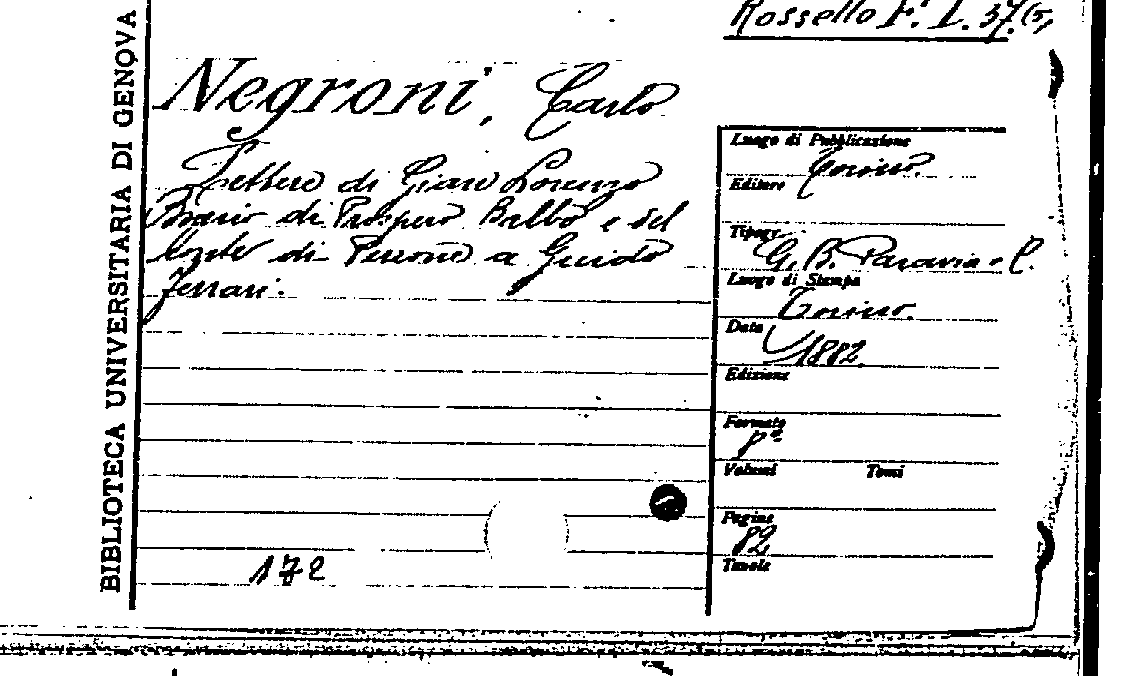 Rossello F. I. 37.(5)
BIBLIOTECA UNIVERSITARIA DI GENOVA
Negroni, Carlo
Lettere di Gian Lorenzo
di Prospero Balbo e del
Conte di a Guido
Ferrari.
172
Luogo di Pubblicazione
Torino.
Editore
Tipogr.
G. B. Paravia e C.
Luogo di Stampa
Torino.
Data
1882
Edizione
Formato
8º
Volumi Tomi
Pagine
82
Tavole